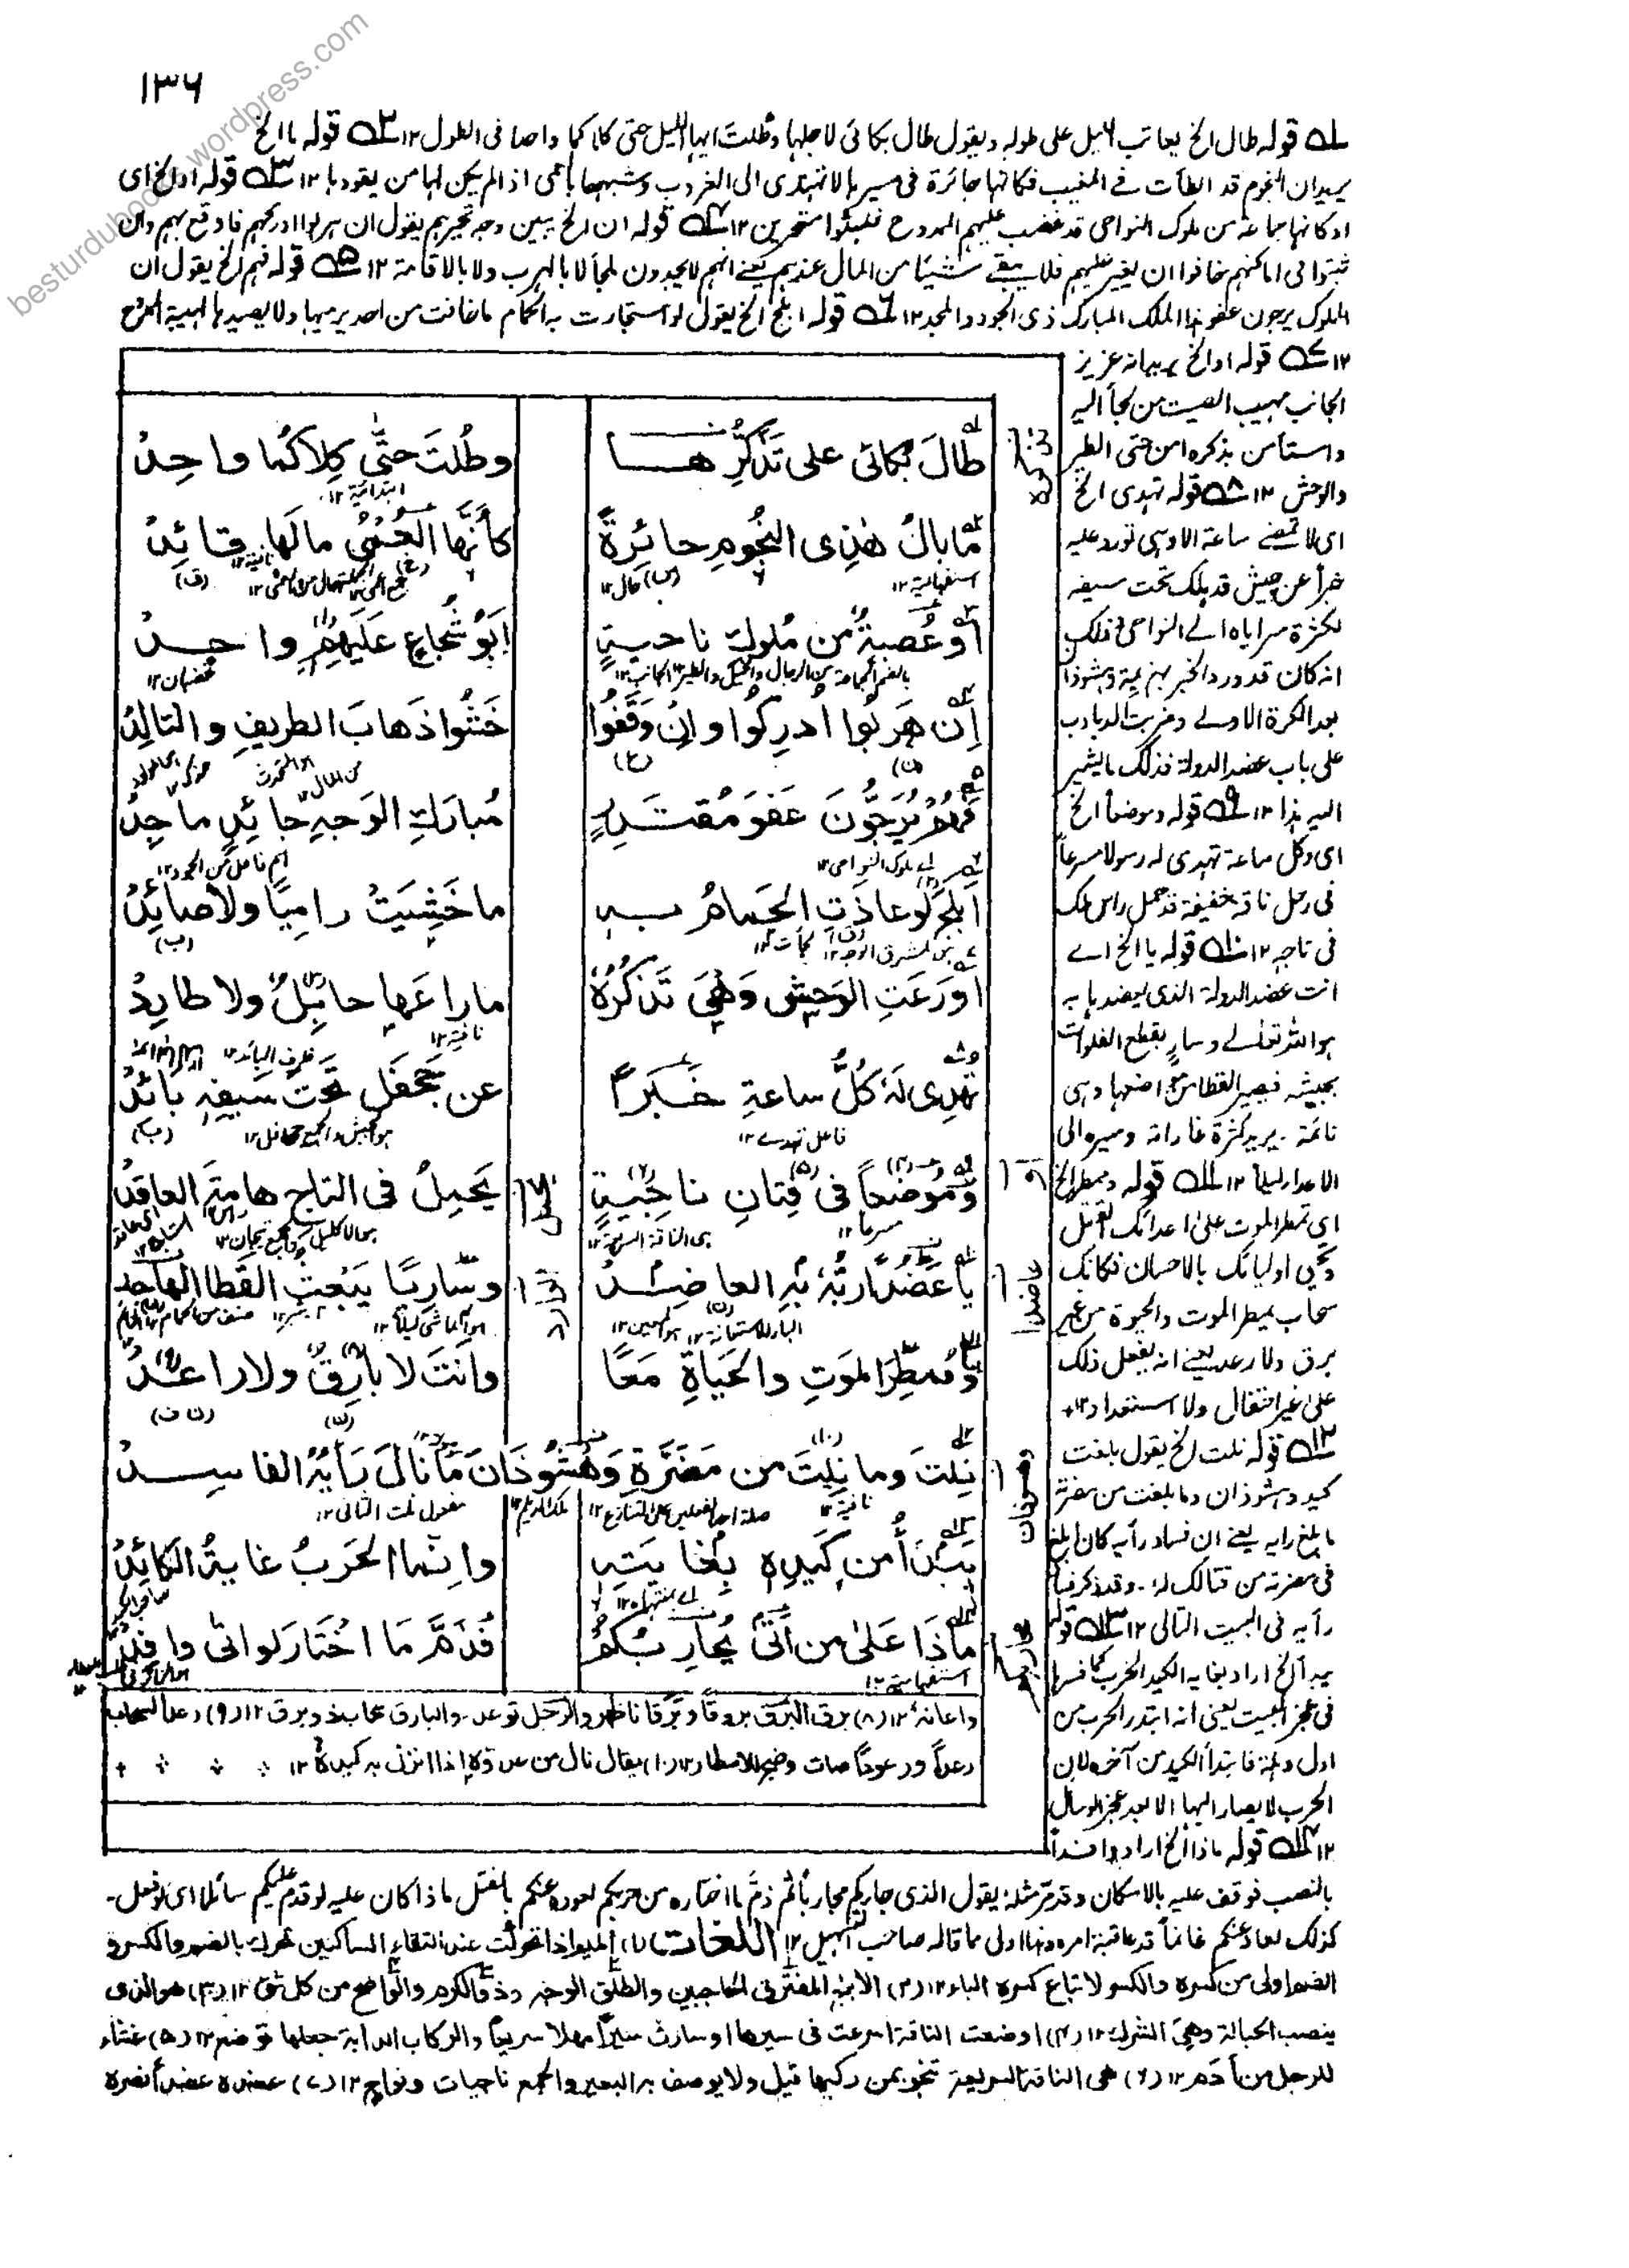 ١٣٦
besturdubooks.wordpress.com
قوله طال الخ يعاتب الليل على طوله ويقول طال بكائى لاجلها وطلت ايها الليل حتى كلاكما واحد فى الطول ١٢ قوله ما الخ
يريد ان النجوم قد ابطأت فى المغيب فكانها حائرة فى مسيرها لا تهتدى الى الغروب وشبهها باعمى اذ لم يكن لها من يقودها ١٢ قوله او الخ اى
او كانها جماعة من ملوك النواحى قد غضب عليهم الممدوح فلبثوا متحيرين ١٢ قوله ان الخ يبين وجه تحيرهم يقول ان هربوا ادركهم فاوقع بهم وان
ثبتوا فى اماكنهم خافوا ان يغير عليهم فلا يبقى شيئا من المال عندهم يعنى انهم لا يجدون ملجأ لا بالهرب ولا بالاقامة ١٢ قوله فهم الخ يقول ان
الملوك يرجون عفو هذا الملك المبارك ذى الجود والمجد ١٢ قوله ابلج الخ يقول لو استجارت به الحمام ما خافت من احد يرميها ولا يصيدها لهيبة الممدوح
١٢ قوله او الخ يريد انه عزيز
الجانب مهيب الصيت من لجأ اليه
واستأمن بذكره امن حتى الطير
والوحش ١٢ قوله تهدى الخ
اى لا تمضى ساعة الا وهى تورد عليه
خبرا عن جيش قد هلك تحت سيفه
لكثرة سراياه الى النواحى وذلك
انه كان قد ورد الخبر بهزيمة وهشوذان
بعد الكرة الاولى وضربت الدبادب
على باب عضد الدولة فذلك ما يشير
اليه هذا ١٢ قوله وموضعا الخ
اى وكل ساعة تهدى له رسولا مسرعاً
فى رحل ناقة خفيفة قد حمل راس ملك
فى تاجه ١٢ قوله يا الخ اے
انت عضد الدولة الذى يعضد ربه
هو الله تعالى وسار يقطع الفلوات
بجيشه فيصير القطا من اضها وهى
نائمة يريد كثرة غاراته ومسيره الى
الاعداء ليلا ١٢ قوله وممطر الخ
اى تمطر الموت على اعدائك بالقتل
وتحيى اوليائك بالاحسان فكانك
سحاب يمطر الموت والحيوة من غير
برق ولا رعد يعنى انه يفعل ذلك
على غير احتفال ولا استعداد ١٢
قوله نلت الخ يقول بلغت
كيد وهشوذان وما بلغت من مضرته
ما بلغ رايه يعنى ان فساد رأيه كان ابلغ
فى مضرته من قتالك له وقد ذكر فساد
رأيه فى البيت التالى ١٢ قوله
يبدأ الخ اراد بغاية الكيد الحرب كما فسرها
فى عجز البيت يعنى انه ابتدر الحرب من
اول وهلة فابتدأ الكيد من آخره لان
الحرب لا يصار اليها الا بعد عجز الوسائل
١٢ قوله ماذا الخ اراد وافداً
طَالَ بُكائى على تَذَكُّرِهــا
وطُلتَ حتَّى كِلاكُما واحِدُ
ابتدائية ١٢
مَا بالُ هٰذِى النُّجُومِ حائِرةً
كأنَّها العُمْىُ مالَها قائِدُ
استفهامية ١٢
حال ١٢
أو عُصبةٌ من مُلوكِ ناحيةٍ
أَبُو شُجاعٍ عَلَيهِمُ واجــدُ
غضبان ١٢
إن هَرَبُوا ادرِكُوا وإنْ وَقَفُوا
خَشُوا ذَهابَ الطريفِ والتالِدُ
فَهُم يُرَجُّونَ عَفوَ مُقتَــدِرٍ
مُبارَكِ الوَجهِ جائِدٍ ماجِدُ
اى ملوك النواحى ١٢
اسم فاعل من الجود ١٢
أبلَجَ لو عاذَتِ الحَمامُ بــهِ
ما خَشِيَتْ رامِيًا ولا صائِدُ
أو رَعَتِ الوَحشُ وَهْىَ تَذكُرُهُ
ما راعَها حابِلٌ ولا طارِدُ
نافية ١٢
ظرف البائد ١٢
تُهدِى لَهٗ كُلُّ ساعةٍ خَــبَراً
عن جَحفَلٍ تَحتَ سَيفِهٖ بائدُ
فاعل تهدى ١٢
هو الجيش والجمع جحافل ١٢
ومُوضعاً فى فِتانِ ناجِيَةٍ
يَحمِلُ فى التاجِ هامةَ العاقدُ
مسرعا ١٢
هى الناقة السريعة ١٢
يا عَضُدًا ربُّهٗ بهِ العاضِــدُ
وسارِيًا يَبعَثُ القَطا الهاجدُ
الباء للاستعانة ١٢
هو الماشى ليلا ١٢
ومُمطِرَ المَوتِ والحَياةِ مَعًا
وأنتَ لا بارِقٌ ولا راعِــدُ
نِلتَ وما نِلتَ من مَضَرَّةِ وَهْشُوذَانَ مَا نالَ رَأيُهُ الفاسِــدُ
نافية ١٢
صلة احد الفعلين على التنازع ١٢
ملك الديلم ١٢
مفعول نلت الثانى ١٢
يَبْدأُ من كَيدِهٖ بِغايَتِهٖ
وإنَّما الحَربُ غايةُ الكائِدُ
اے بمنتهاه ١٢
مَاذَا عَلىٰ من أتَىٰ يُحارِبُكُمْ
فَذَمَّ مَا اختَارَ لو اتَىٰ وافِدُ
استفهامية ١٢
واعانهٗ ١٢ (٨) برق البرق بروقًا وبرقًا ناظهر والرجل توعد والبارق سحاب ذو برق ١٢ (٩) رعد السحاب
رعداً ورعوداً صات وضج للامطار ١٢ (١٠) يقال نال من عدوه اذا انزل به كيده ١٢
بالنصب فوقف عليه بالاسكان وقد مر مثله يقول الذى جاركم محارباً لم ذمَّ ما اختاره من حربكم لعوده عنكم بالفشل ماذا كان عليه لو قدم عليكم سائلا اى لو فعل
كذلك لعاد عنكم غانماً قد عاقبة امره وهذا اولى مما قاله صاحب التسهيل ١٢ اللغات (١) الميم اذا تحركت عند التقاء الساكنين تحرك بالضم والكسر و
الضم اولى من كسره والكسر لاتباع كسرة الهاء ١٢ (٢) الابلج المفترق الحاجبين والطلق الوجه وذو الكرم والواضح من كل شئ ١٢ (٣) هو الذى
ينصب الحبالة وهى الشرك ١٢ (٤) اوضعت الناقة اسرعت فى سيرها او سارت سيراً سهلا سريعًا والركاب الدابة جعلها توضع ١٢ (٥) غشاء
للرجل من أدم ١٢ (٦) هى الناقة السريعة تنجو بمن ركبها قيل ولا يوصف به البعير والجمع ناجيات ونواج ١٢ (٧) عضده عضداً نصره